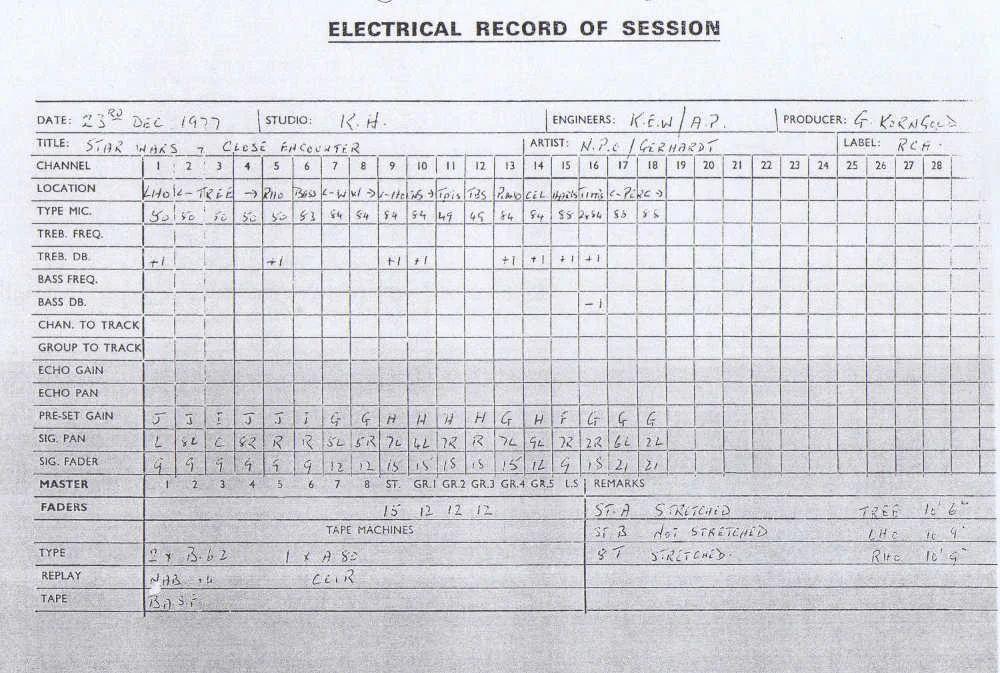 ELECTRICAL RECORD OF SESSION
DATE: 23RD DEC 1977 STUDIO: K.H. ENGINEERS: K.E.W/A.P. PRODUCER: G. KORNGOLD
TITLE: STAR WARS + CLOSE ENCOUNTER ARTIST: N.P.O/GERHARDT LABEL: RCA.
CHANNEL 1 2 3 4 5 6 7 8 9 10 11 12 13 14 15 16 17 18 19 20 21 22 23 24 25 26 27 28
LOCATION LHO ← TREE → RHO BASS ← W/W → ← HO NS → TPTS TBS PIANO CEL HARPS TIMPS ← PERC →
TYPE MIC. 50 50 50 50 50 83 84 84 84 84 49 49 84 84 88 2x84 88 88
TREB. FREQ.
TREB. DB. +1 +1 +1 +1 +1 +1 +1 +1
BASS FREQ.
BASS DB. -1
CHAN. TO TRACK
GROUP TO TRACK
ECHO GAIN
ECHO PAN
PRE-SET GAIN J J I J J I G G H H H H G H F G G G
SIG. PAN L 8L C 8R R R 5L 5R 7L 6L 7R R 7L 9L 7R 2R 6L 2L
SIG. FADER 9 9 9 9 9 9 12 12 15 15 15 15 15 12 9 15 21 21
MASTER 1 2 3 4 5 6 7 8 ST. GR.1 GR.2 GR.3 GR.4 GR.5 L.S REMARKS
FADERS 15 12 12 12 ST. A STRETCHED TREE 10' 6"
TAPE MACHINES ST B NOT STRETCHED LHO 10' 9"
TYPE 2 x B.62 1 x A80 8T STRETCHED. RHO 10' 9"
REPLAY NAB CCIR
TAPE BASF